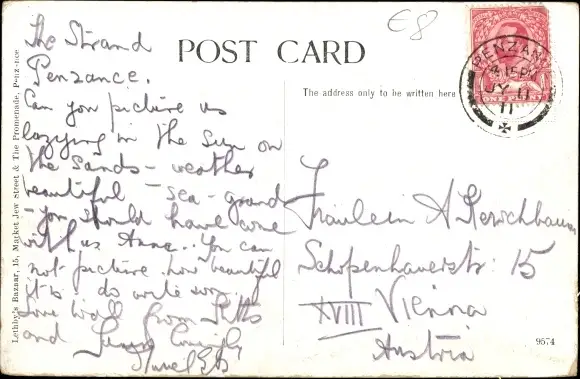 £8
POST CARD
The address only to be written here
The Strand
Penzance.
Can you picture us
lazying in the sun on
the sands - weather
beautiful - sea - grand
- you should have come
with us Anna.. You can
not picture how beautiful
it is. do write soon.
Love to all from
and
Fräulein A Kerschbaum
Schopenhauerstr: 15
XVIII Vienna
Austria
PENZANCE
4 15 PM
JY 11
11
ONE PENNY
9574
Lethby's Bazaar, 15, Market Jew Street & The Promenade, Penzance